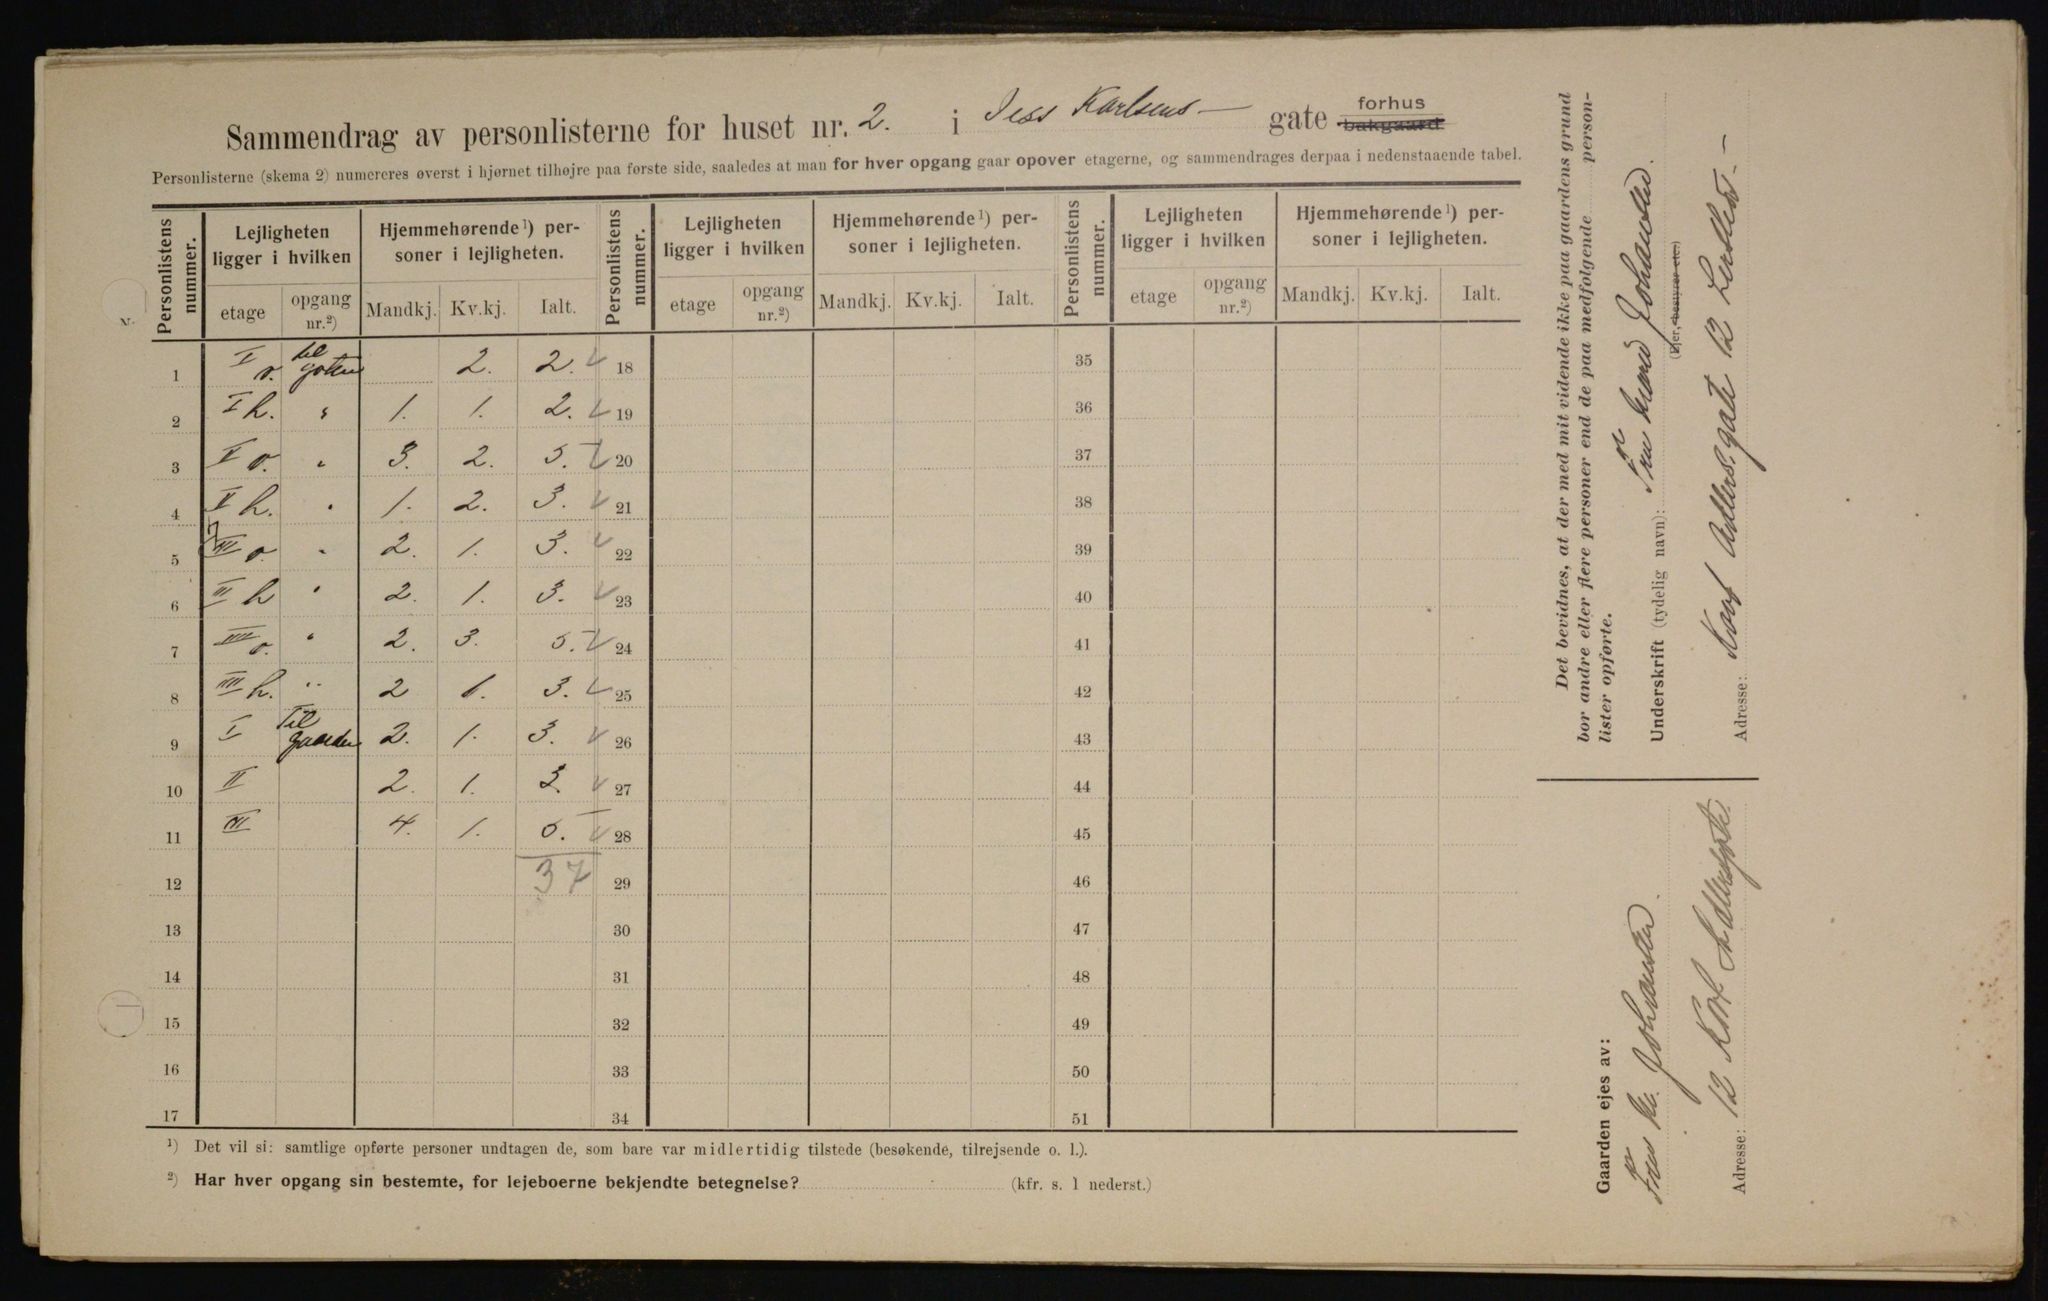 Sammendrag av personlisterne for huset nr. 2. i Jess Karlsens gate forhus bakgaard
Personlisterne (skema 2) numereres øverst i hjørnet tilhøjre paa første side, saaledes at man for hver opgang gaar opover etagerne, og sammendrages derpaa i nedenstaaende tabel.
Personlistens nummer. Lejligheten ligger i hvilken Hjemmehørende¹) personer i lejligheten. Personlistens nummer. Lejligheten ligger i hvilken Hjemmehørende¹) personer i lejligheten. Personlistens nummer. Lejligheten ligger i hvilken Hjemmehørende¹) personer i lejligheten.
etage opgang nr.²) Mandkj. Kv.kj. Ialt. etage opgang nr.²) Mandkj. Kv.kj. Ialt. etage opgang nr.²) Mandkj. Kv.kj. Ialt.
1 I v. til gaten 2. 2. 18 35
2 I h. " 1. 1. 2. 19 36
3 II v. " 3. 2. 5. 20 37
4 II h. " 1. 2. 3. 21 38
5 III v. " 2. 1. 3. 22 39
6 III h " 2. 1. 3. 23 40
7 IIII v. " 2. 3. 5. 24 41
8 IIII h. " 2 1. 3. 25 42
9 I Til gaarden 2. 1. 3. 26 43
10 II 2. 1. 3. 27 44
11 III 4. 1. 5. 28 45
12 37 29 46
13 30 47
14 31 48
15 32 49
16 33 50
17 34 51
¹) Det vil si: samtlige opførte personer undtagen de, som bare var midlertidig tilstede (besøkende, tilrejsende o. l.).
²) Har hver opgang sin bestemte, for lejeboerne bekjendte betegnelse? (kfr. s. 1 nederst.)
Det bevidnes, at der med mit vidende ikke paa gaardens grund
bor andre eller flere personer end de paa medfølgende personlister opførte.
Underskrift (tydelig navn): Fru Johansted.
(Ejer, bestyrer etc.)
Adresse: Adlersgate 12
Gaarden ejes av:
Fru M. Johansted.
Adresse: 12 Adlersgate